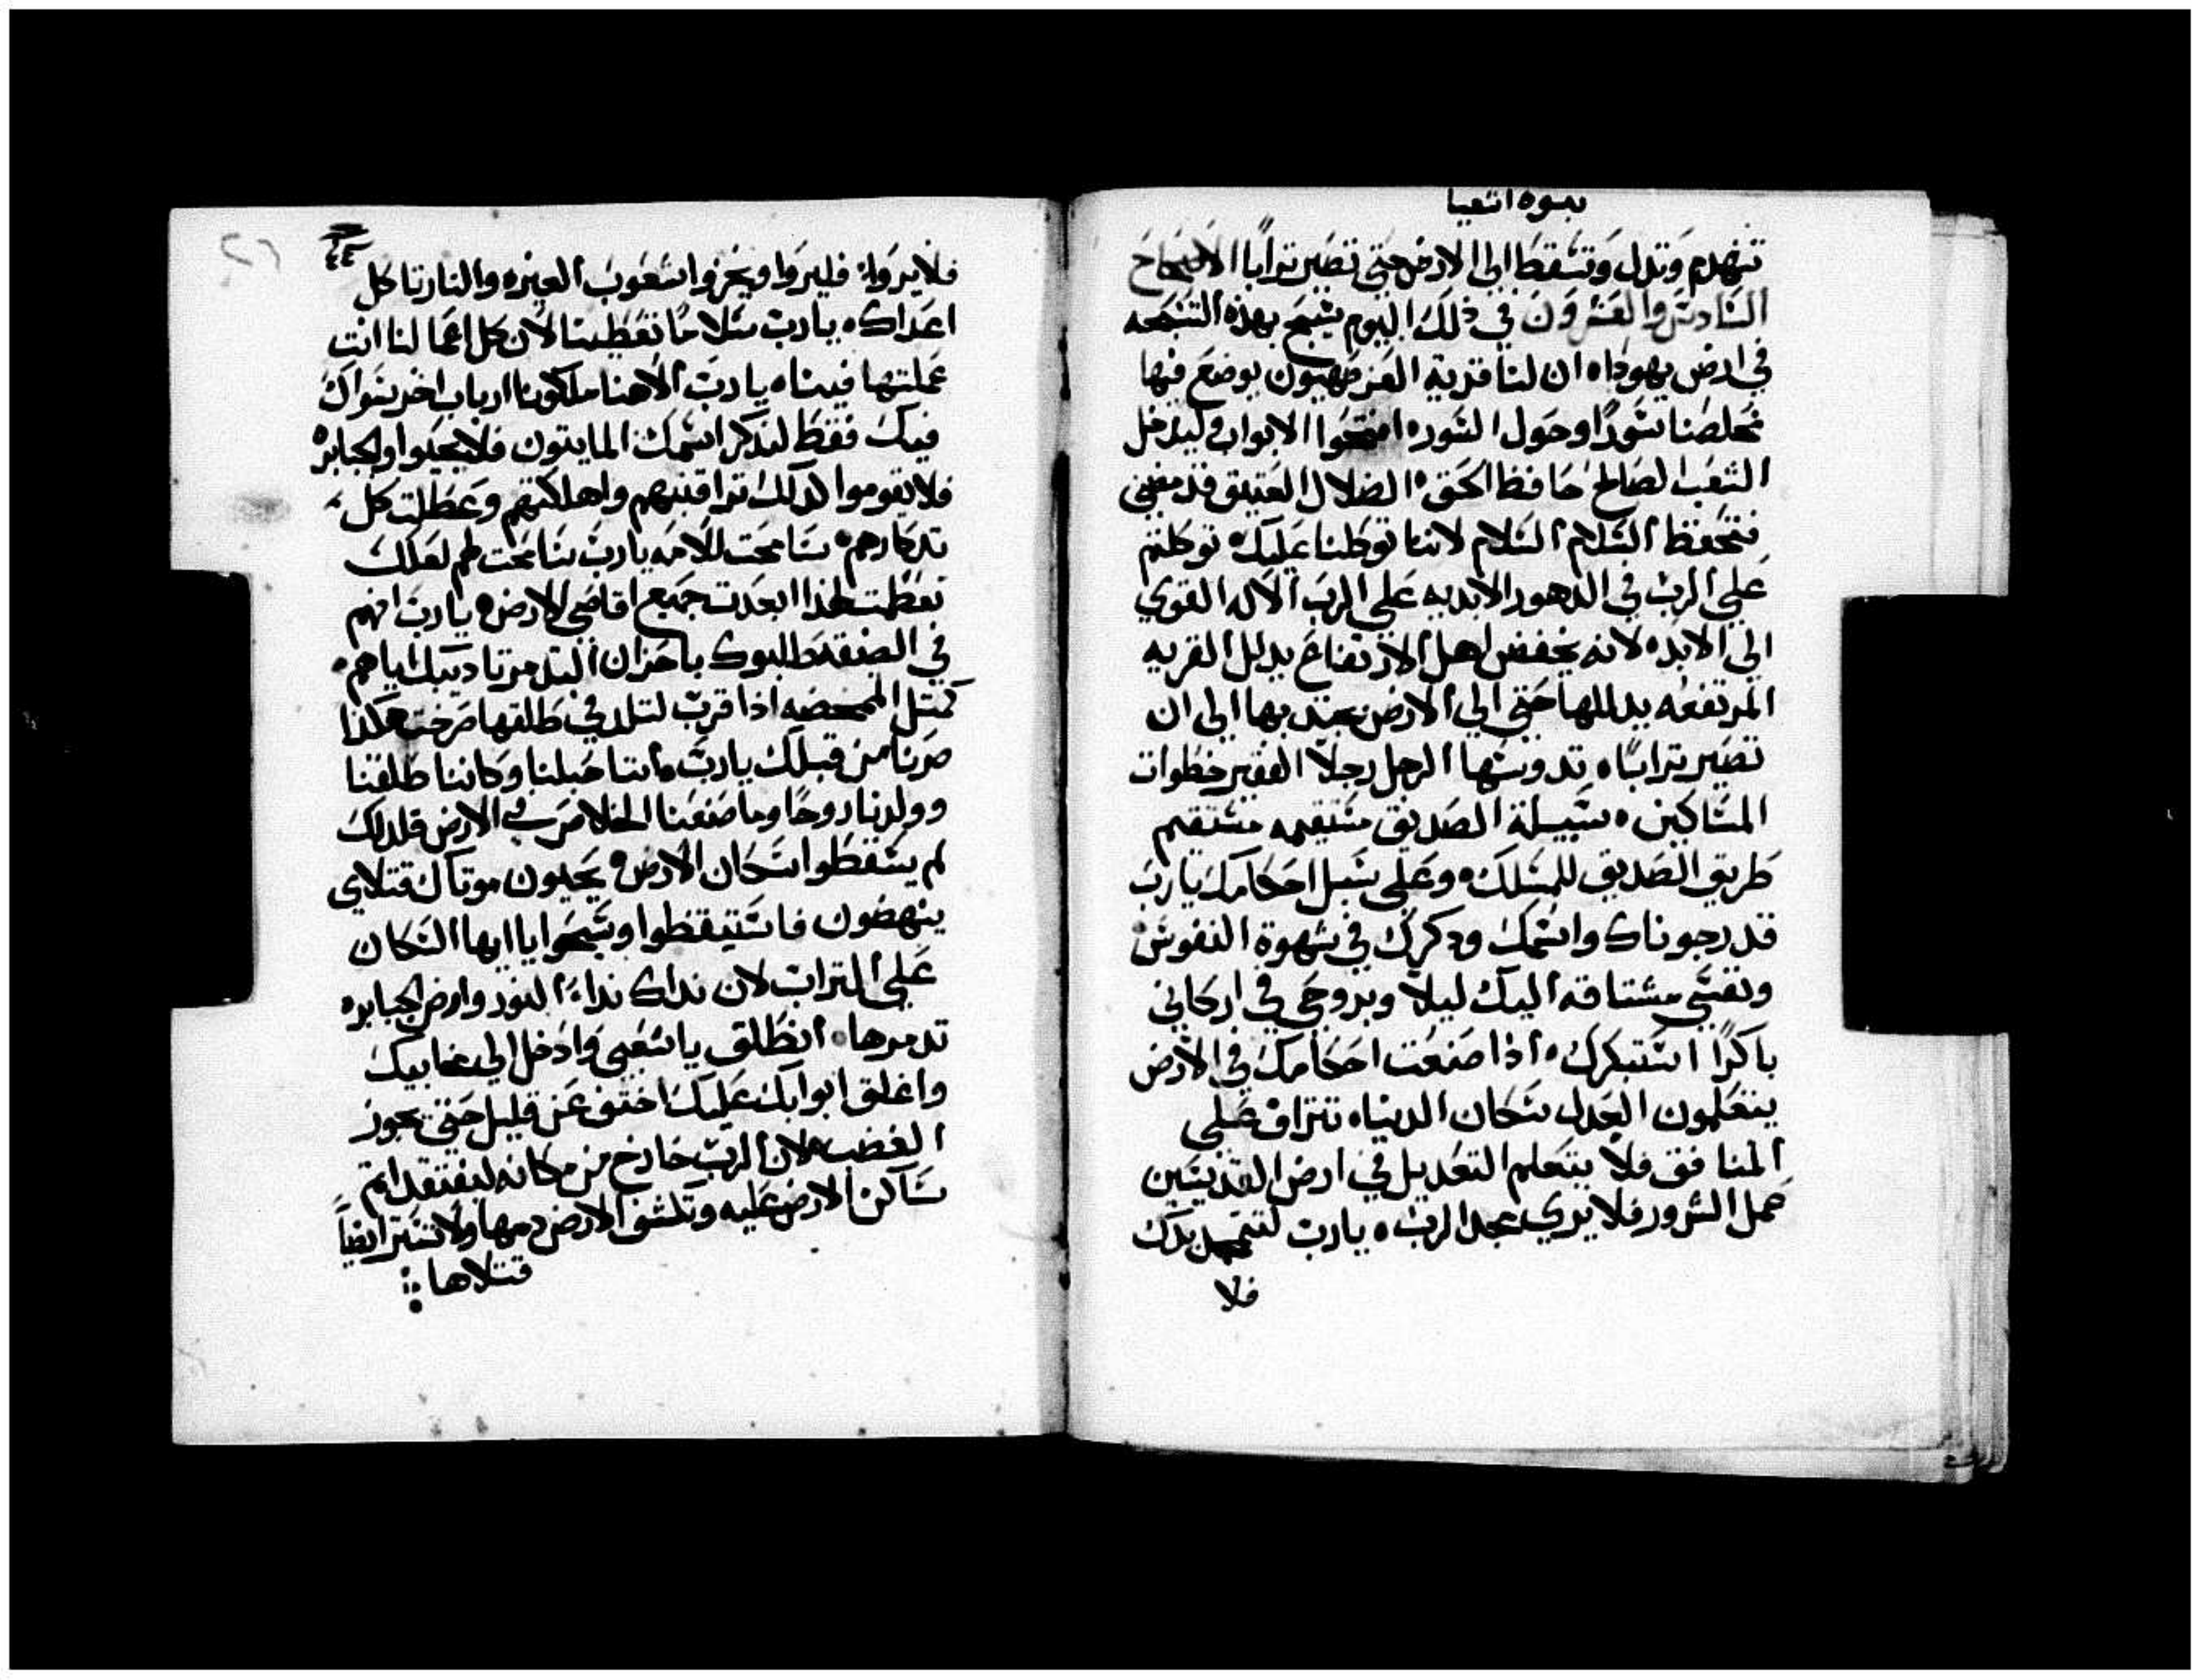 نبوة اشعيا
تنهدم وتدل وتسقط الي الارض حتي تصير ترابا الاصحاح
السادس والعشرون في ذلك اليوم يسبح بهذه التسبحه
في ارض يهوداه ان لنا قرية العز صهيون يوضع فيها
مخلصنا سورًا وحول السوره افتحوا الابواب وليدخل
الشعب الصالح حافظ الحق ه الضلال العتيق قد مضي
فتحفظ السلام السلام لاننا توكلنا عليك ه توكلتم
علي الرب في الدهور الابديه علي الرب الاله القوي
الي الابد ه لانه يخفض اهل الارتفاع يدلل القريه
المرتفعه يدللها حتي الي الارض يجتدبها الي ان
تصير ترابًا ه تدوسها الرجل رجلا الفقير خطوات
المساكين ه سبيلة الصديق مستقيمه مستقيم
طريق الصديق للمسلك ه وعلي سبل احكامك يا رب
قد رجوناك واسمك ودكرك في شهوة النفوس
ونفسي مشتاقه اليك ليلا وبروحي في اركاني
باكرًا استبكرك ه اذا صنعت احكامك في الارض
يتعلمون العدل سكان الدنيا ه تتراف علي
المنافق فلا يتعلم التعديل في ارض القديسين
عمل الشرور فلا يري مجد الرب ه يا رب لتتمجد يدك
فلا
٤٤
فلا يروا ه فليروا ويخزوا شعوب الغيره والنار تاكل
اعداك ه يا رب سلامًا تعطينا لان كل اعمالنا انت
عملتها فينا ه يا رب الاهنا ملكونا ارباب اخر سواك
فيك فقط لندكر اسمك المايتون فلا يحيوا والجبابره
فلا يقوموا لدلك تراقبتهم واهلكتهم وعطلت كل
تدكارهم ه سامحت للامه يا رب سامحت لهم لعلك
تعظمت لهذا ابعدت جميع اقاصي الارض ه يا رب انهم
في الضيقه طلبوك باحزان التدمر تاديبك اياهم ه
كمتل الممخضه اذا قرب لتلد في طلقها صرخت هكذا
صرنا من قبلك يا رب ه اننا حبلنا وكاننا طلقنا
وولدنا روحًا وما صنعنا الخلاص في الارض فلدلك
لم يسقطوا سكان الارض ه يحيون موتاك قتلاي
ينهضون فاستيقظوا وسبحوا يا ايها السكان
علي التراب لان نداك نداءُ النور وارض الجبابره
تدمرها ه انطلق يا شعبي وادخل الي مخابيك
واغلق ابوابك عليك اختف عن قليل حتي يجوز
الغضب ه لان الرب خارج من مكانه ليفتقد اتم
ساكن الارض عليه وتكشف الارض دمها ولا تستر ايضاً
قتلاها